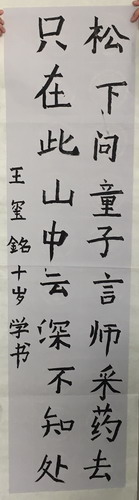 松下问童子言师采药去
只在此山中云深不知处
王玺銘十岁学书